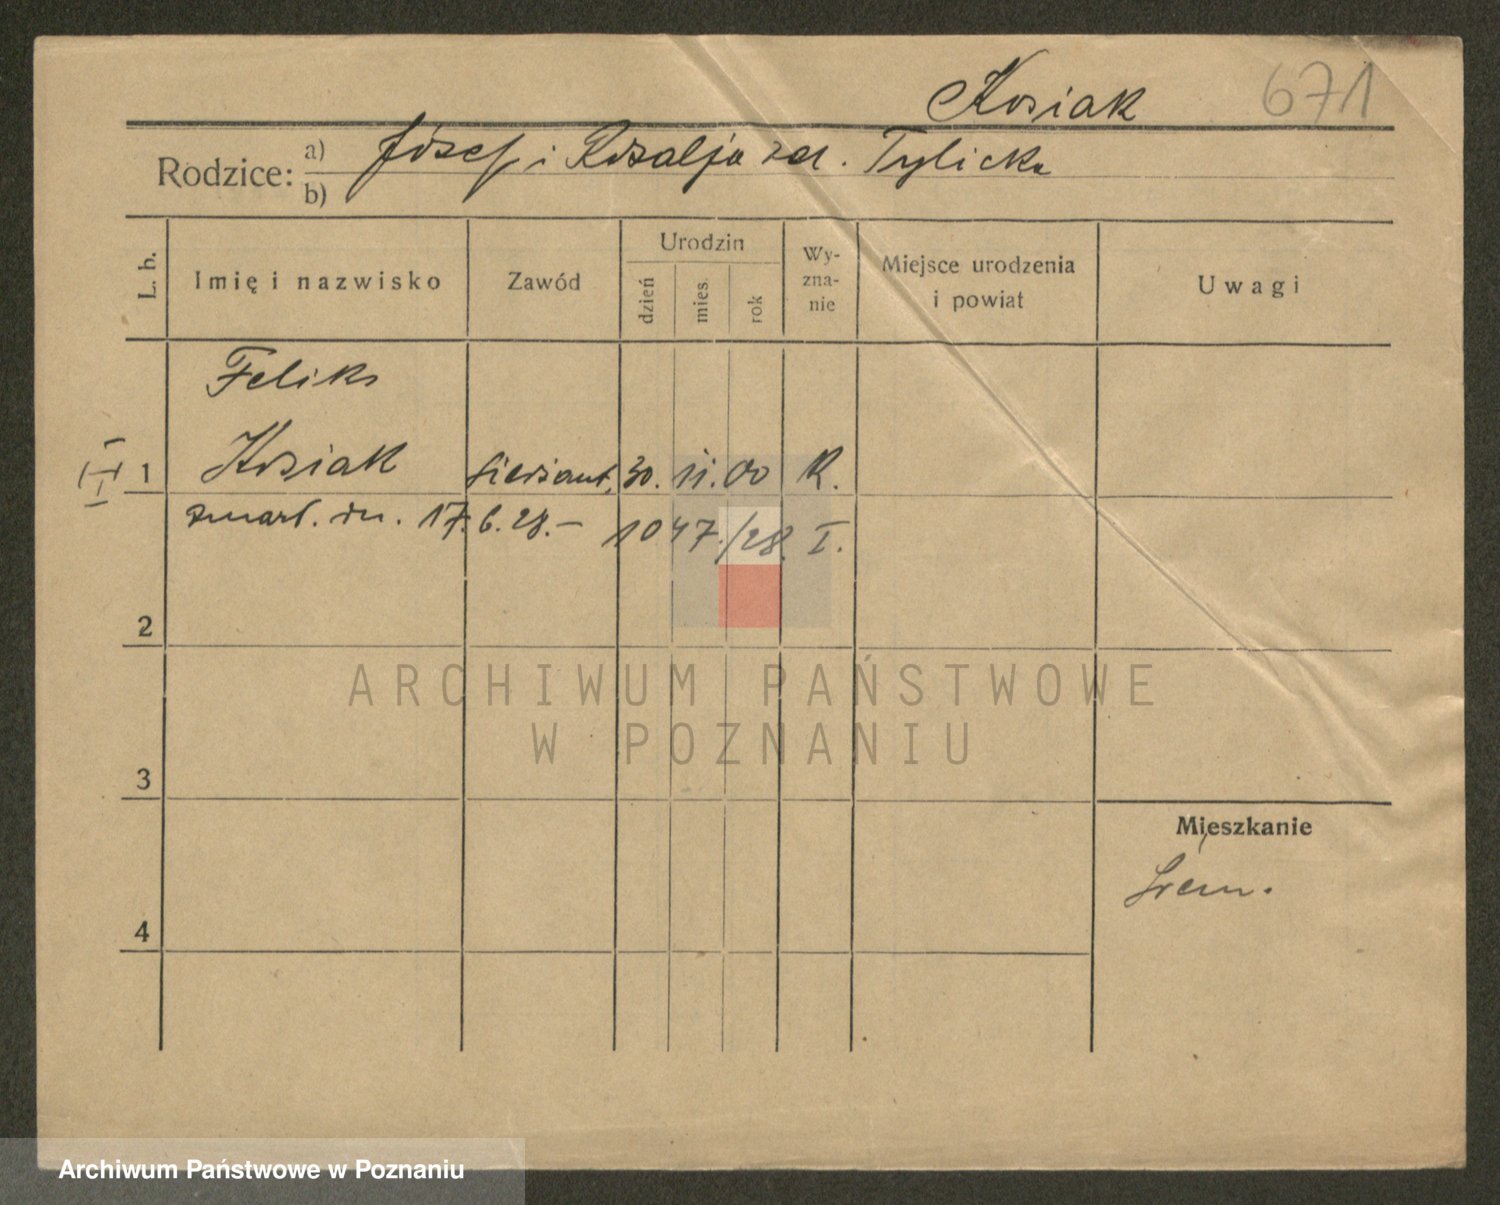 Kosiak 671
Rodzice: a) Józef i Rozalja zd. Tylicka
b)
L. b. Imię i nazwisko Zawód Urodzin dzień mies. rok Wy-zna-nie Miejsce urodzenia i powiat Uwagi
Feliks
1 Kosiak sierżant, 30. 11. 00 K.
zmarł. dn. 17. 6. 28. – 1047./28. I.
2
ARCHIWUM PAŃSTWOWE
W POZNANIU
3
Mieszkanie
Śrem.
4
Archiwum Państwowe w Poznaniu